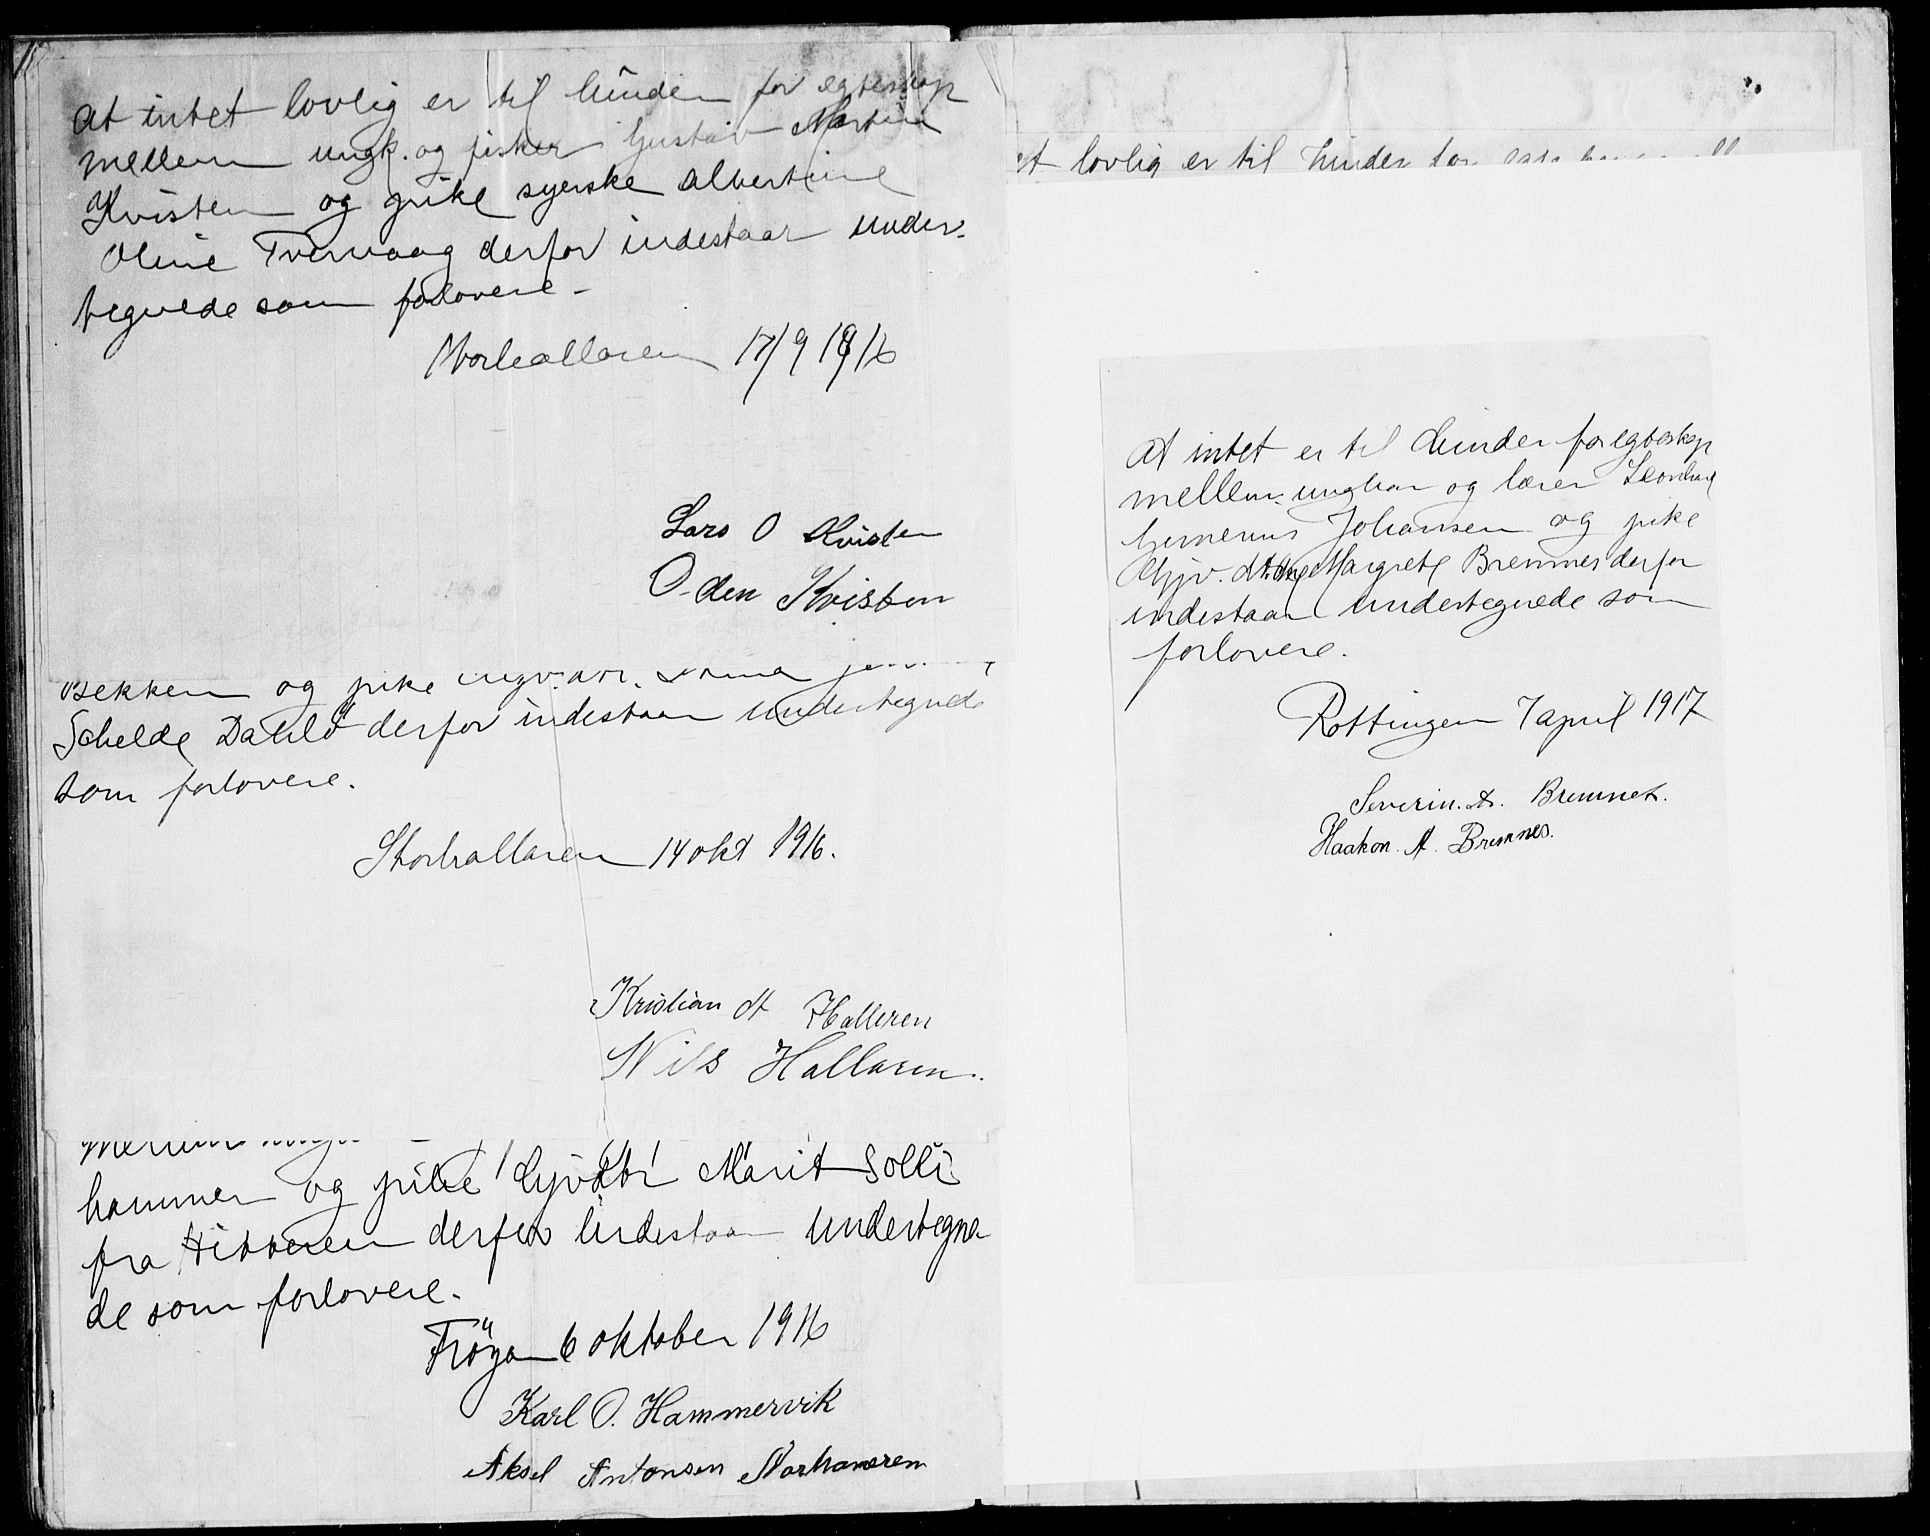 At intet lovlig er til hinder for egteskap
mellem ungk. og fisker Gustav Martin
Kvisten og pike syerske Albertine
Oline Tvervaag derfor indestaar under-
tegnede som forlovere-
Norhallaren 17/9 1916
Lars O Kvisten
Oden Kvisten
Bekken og pike
Schelde Dahlø derfor indestaar undertegnede
som forlovere.
Storhallaren 14 okt 1916.
Kristian A Halleren
Nils Hallaren.
hammer og pike Marit Solli
fra derfor indestaar undertegne
de som forlovere.
Frøya 6 oktober 1916
Karl O. Hammervik
Aksel Antonsen
et lovlig er til hinder for
At intet er til hinder for egteskap
mellem ungkar og lærer Leonhard
Johansen og pike
Margrete Bremnes derfor
indestaar undertegnede som
forlovere.
Rottingen 7 april 1917
Severin. A. Bremnes.
Haakon. A. Bremnes.